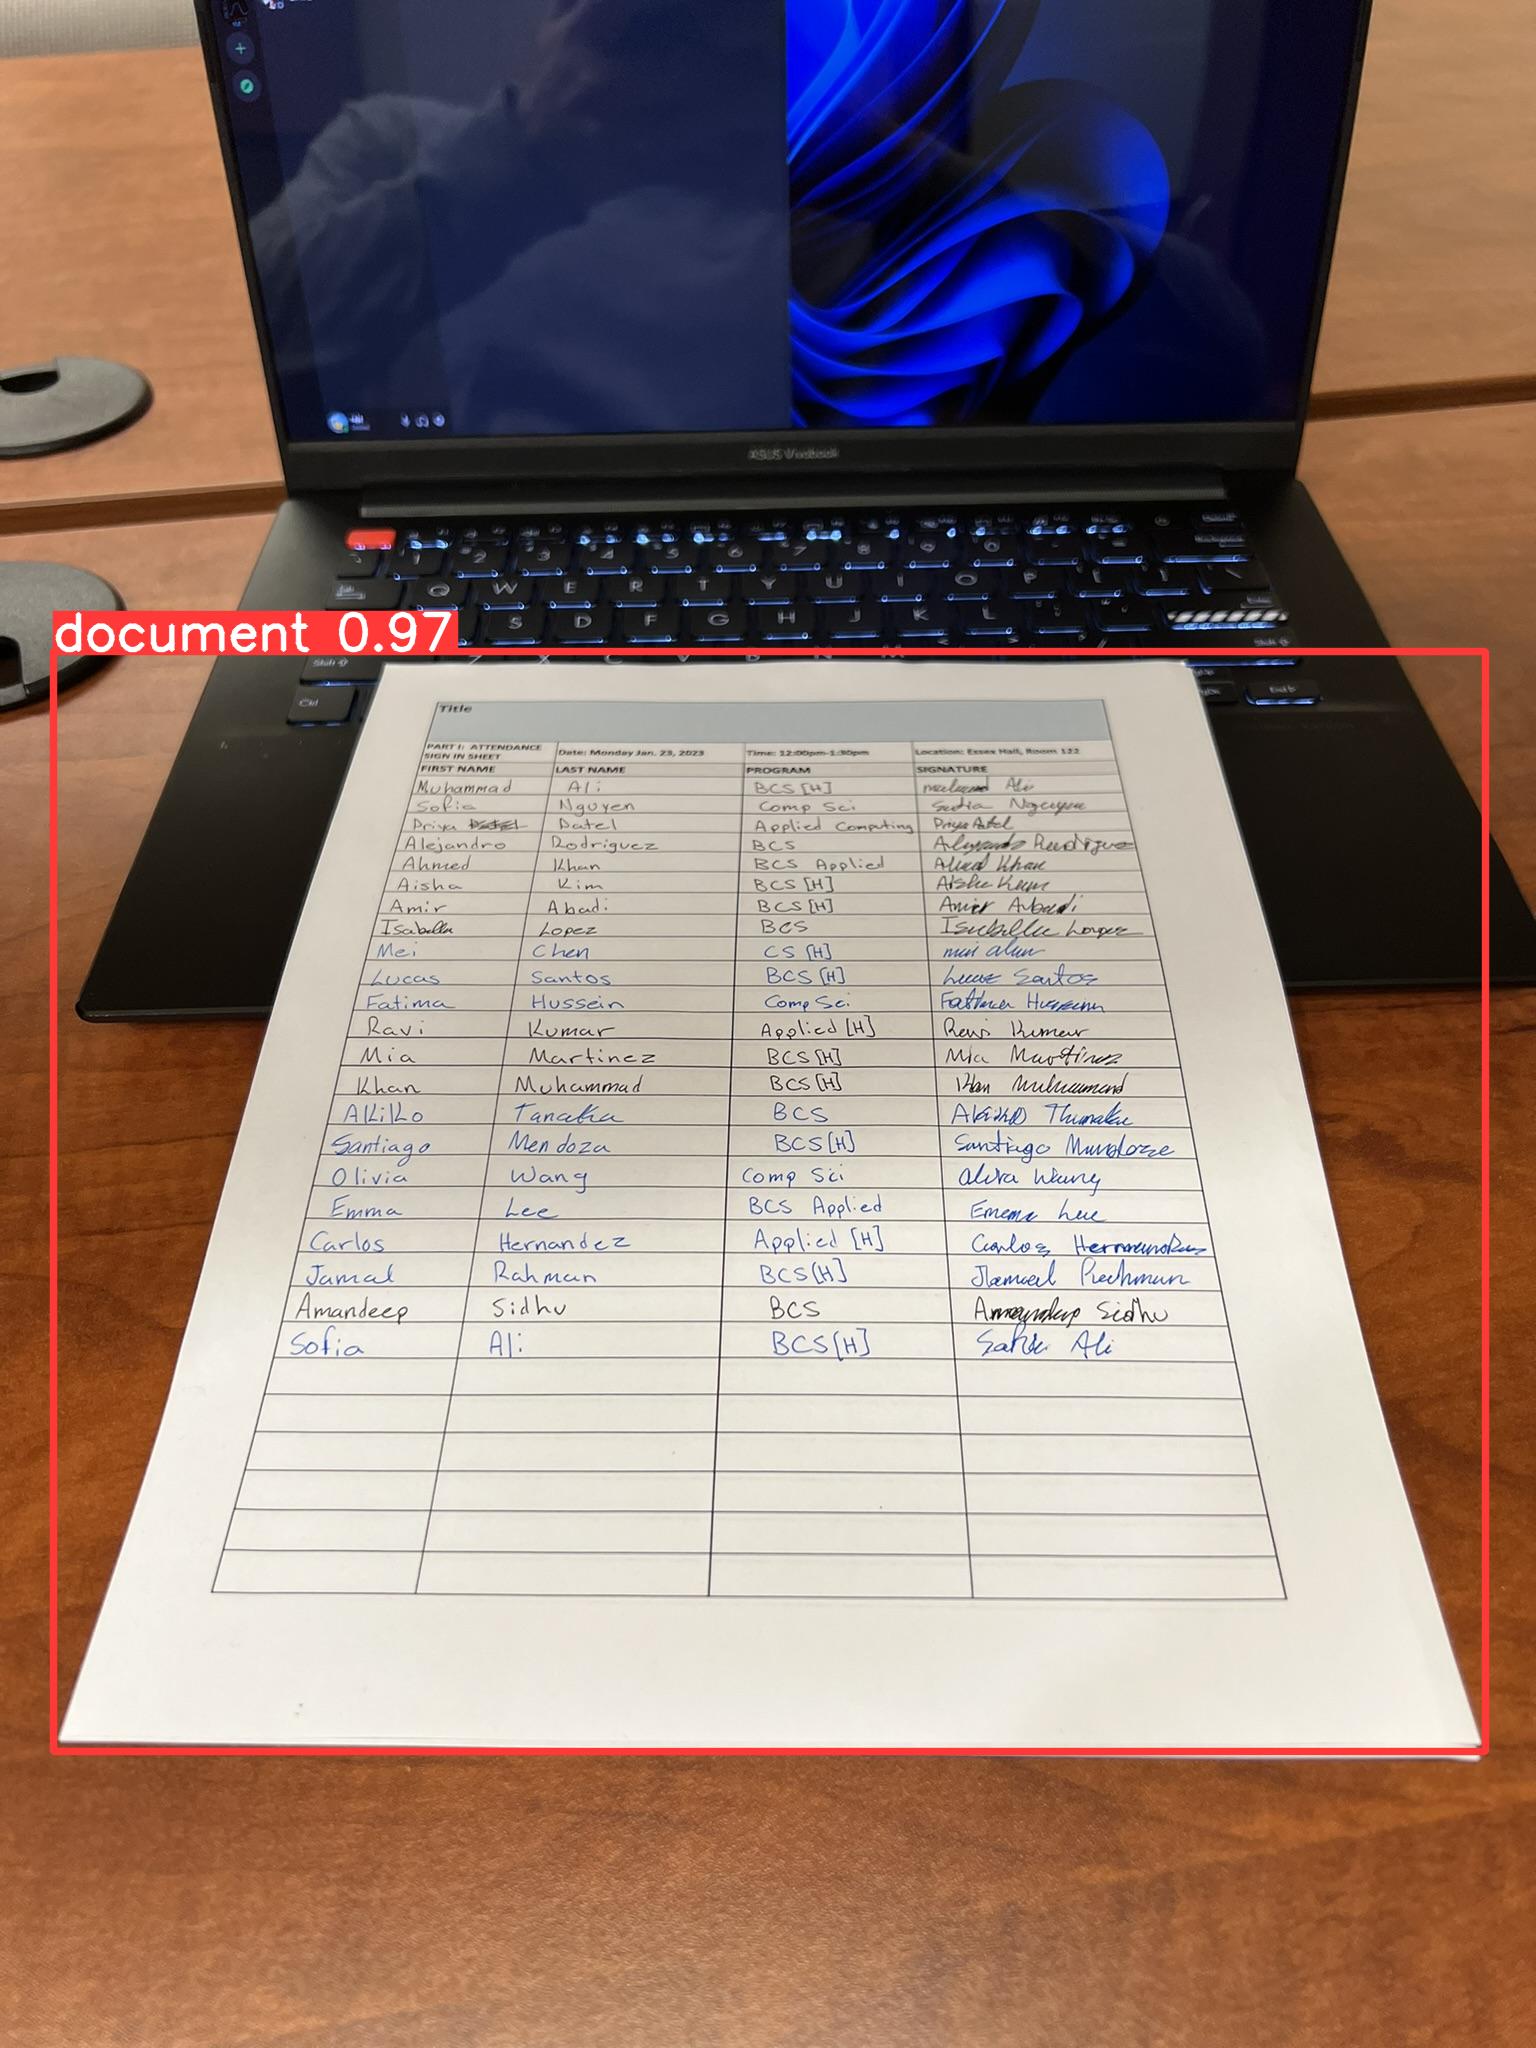 ASUS Vivobook
1 2 3 4 5 6 7 8 9 0
Q W E R T Y U I O P
S D F G H J K L
document 0.97
Shift
Z X C V B N M
Ctrl
Title
PART I: ATTENDANCE SIGN IN SHEET Date: Monday Jan. 23, 2023 Time: 12:00pm-1:30pm Location: Essex Hall, Room 122
FIRST NAME LAST NAME PROGRAM SIGNATURE
Muhammad Ali BCS [H] Ali
Sofia Nguyen Comp Sci Nguyen
Priya Patel Applied Computing Priya Patel
Alejandro Rodriguez BCS Alejandro Rodriguez
Ahmed Khan BCS Applied Ahmed Khan
Aisha Kim BCS [H] Aisha Kim
Amir Abadi BCS [H] Amir Abadi
Isabella Lopez BCS Isabella Lopez
Mei Chen CS [H] mei chen
Lucas Santos BCS [H] Lucas Santos
Fatima Hussein Comp Sci Fatima Hussein
Ravi Kumar Applied [H] Ravi Kumar
Mia Martinez BCS [H] Mia Martinez
Khan Muhammad BCS [H] Khan Muhammad
Akiko Tanaka BCS Akiko
Santiago Mendoza BCS [H] Santiago Mendoza
Olivia Wang Comp Sci Wang
Emma Lee BCS Applied Emma Lee
Carlos Hernandez Applied [H] Carlos Hernandez
Jamal Rahman BCS [H] Jamal Rahman
Amandeep Sidhu BCS Amandeep Sidhu
Sofia Ali BCS [H] Sofia Ali